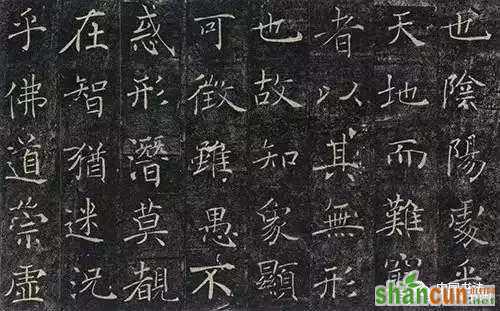 也陰陽處乎
天地而難窮
者以其無形
也故知象顯
可徵雖愚不
惑形潛莫覩
在智猶迷況
乎佛道崇虛
shancun